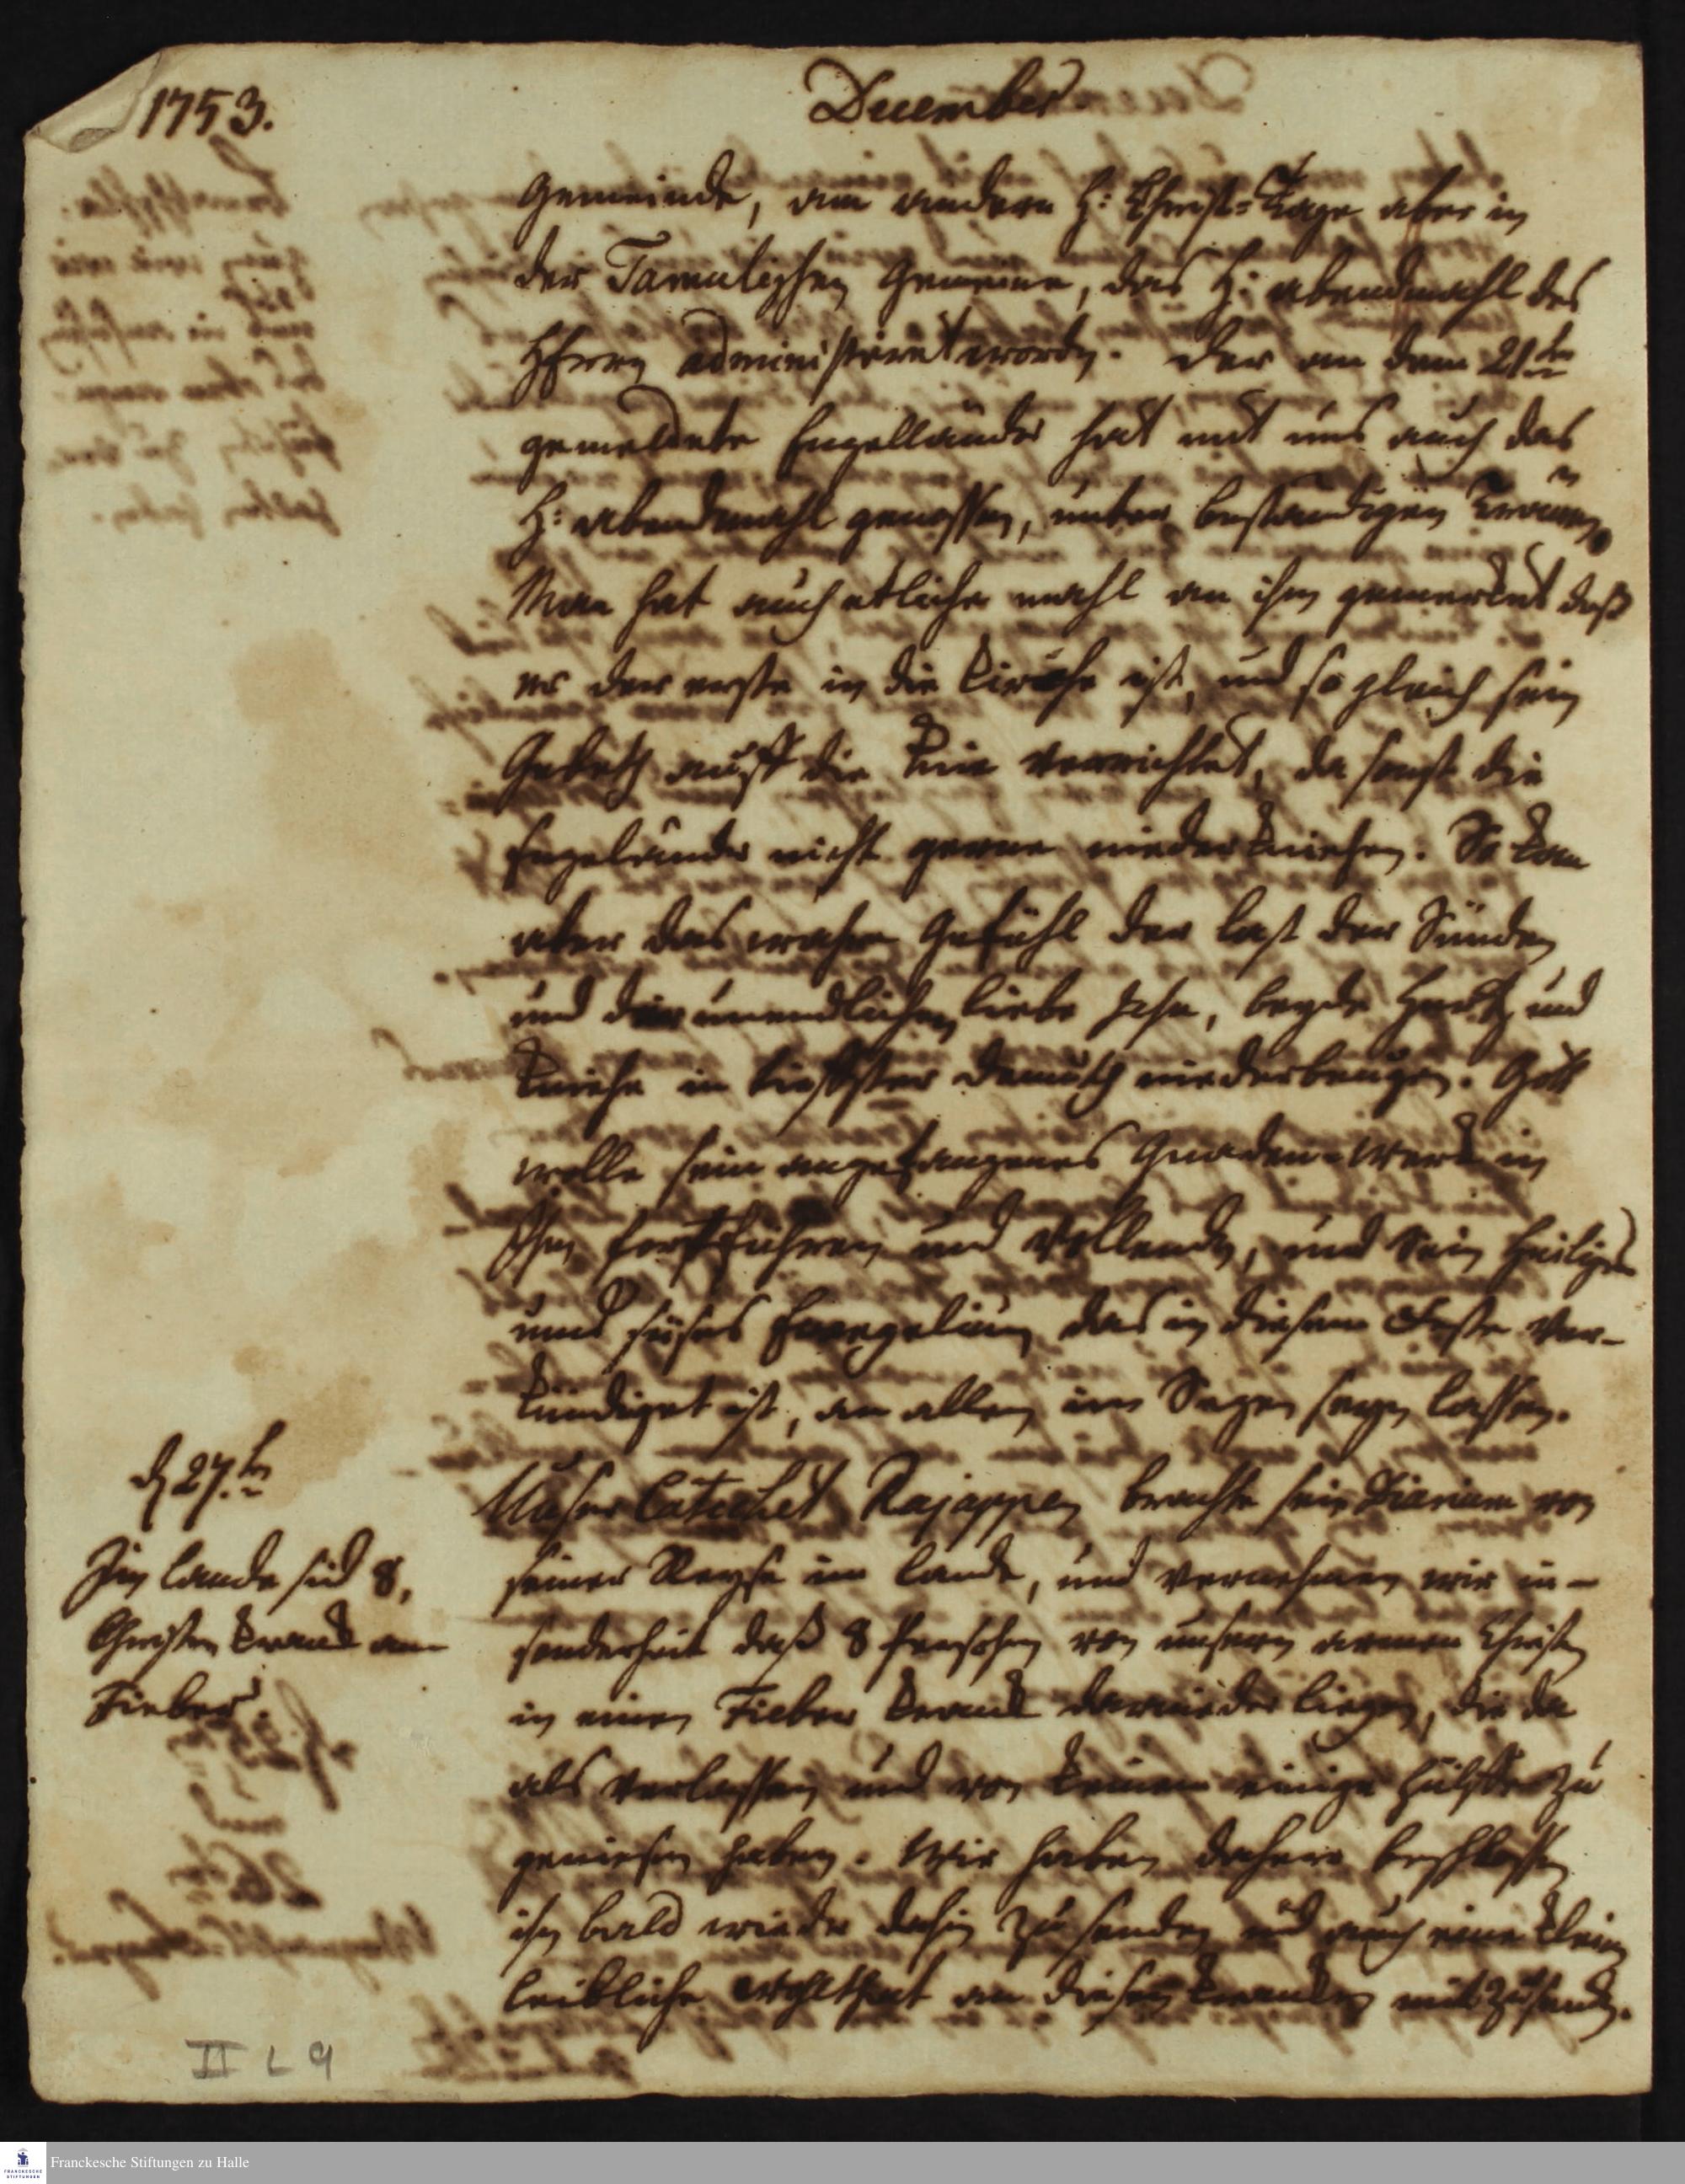 1753.
December
Gemeinde, am andern H: Christ=Tage aber in
der Tamulischen Gemeine, das H: abendmahl des
HErrn administriret worden. Der an dem 21ten
gemeldete Engelländer hat mit uns auch das
H: abendmahl genossen, unter beständigen Thränen.
Man hat auch etliche mahl an ihm gemercket daß
er der erste in die Kirche ist, und so gleich sein
Gebeth auff die Knie verrichtet, da sonst die
Engeländer nicht gerne niederkniehen. So kan
aber das wahre Gefühl der last der Sünden
und der unendlichen liebe Jesu, beyde Hertz und
Kniehe in tieffster Demuth niederbeugen. Gott
wolle sein angefangenes Gnaden=Werck in
Ihm fortführen und Vollenden, und Sein heiliges
und süses Evangelium das in diesem Feste ver-
kündiget ist, an allen im Segen seyn lassen.
d 27.ten
Im lande sind 8,
Christen kranck am
Fieber.
Unser Catechet Rajappen brachte sein Diarium von
seiner Reyse im lande, und vernehmen wir in-
sonderheit daß 8 Persohnen von unsern armen Christen
in einen Fieber kranck darnieder liegen, die da
als verlassen und von keinem einige Hülffe zu
geniesen haben. Wir haben dahero beschlossen
ihn bald wieder dahin zu senden und auch eine kleine
leibliche wohlthat an diesen krancken mitzusenden.
II L 9
Franckesche Stiftungen zu Halle
FRANCKESCHE
STIFTUNGEN